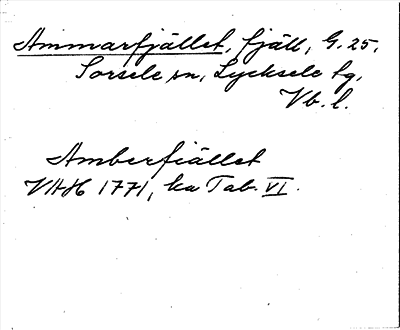 Ammarfjället, fjäll, G. 25,
Sorsele sn, Lycksele tg,
Vb. l.
Amberfiället
VAH 1771, ka Tab. VI.